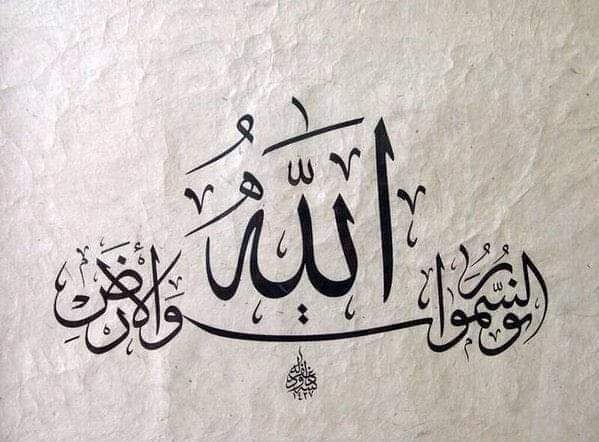 اللهُ نُورُ السَّمٰوَاتِ وَالْأَرْضِ
١٤٢٧